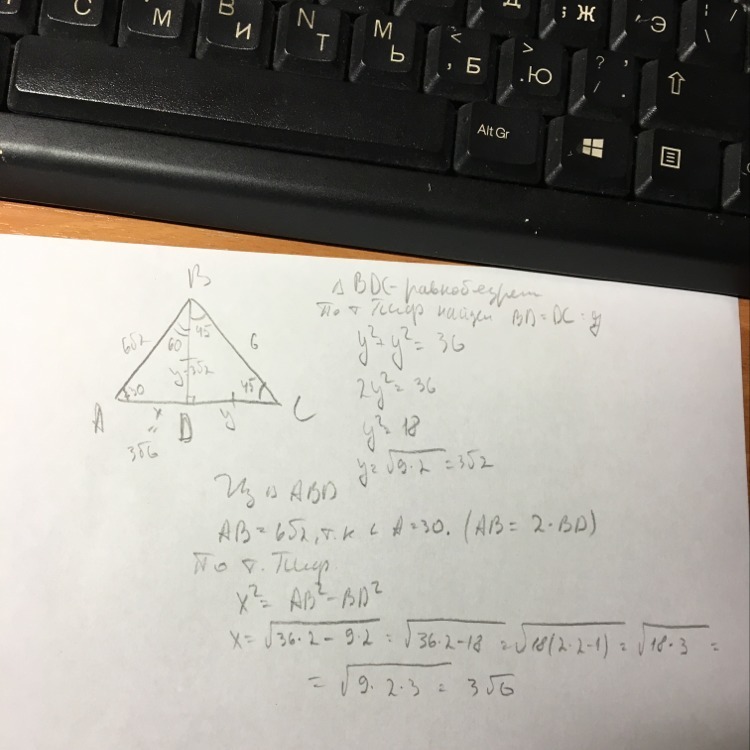 С М В И N Т М Ь < , Б > . Ю ; Ж Э ? , / .
Alt Gr
B
6√2 60 45 6
y=3√2
30 45
A x D y C
=
3√6
△ BDC - равнобедрен
По т. Пиф найдем BD = DC = y
y²+y² = 36
2y² = 36
y² = 18
y = √9·2 = 3√2
Из △ ABD
AB = 6√2, т.к ∠ A = 30. (AB = 2·BD)
По т. Пиф
x² = AB² - BD²
x = √36·2 - 9·2 = √36·2 - 18 = √18(2·2-1) = √18·3 =
= √9·2·3 = 3√6